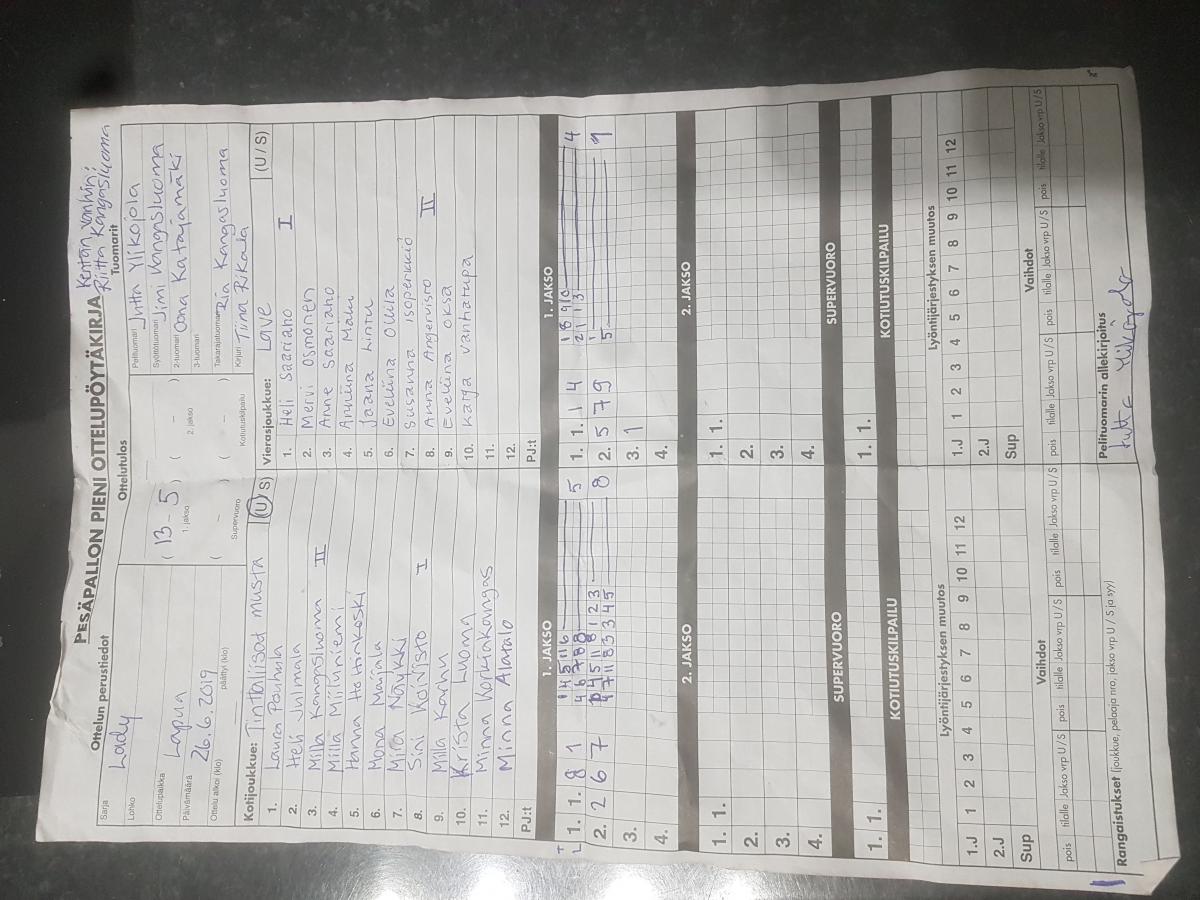 PESÄPALLON PIENI OTTELUPÖYTÄKIRJA
Kentän vanhin:
Riitta Kangasluoma
Ottelun perustiedot
Ottelutulos
Tuomarit
Sarja
Lady
Lohko
Ottelupaikka
Lapua
Päivämäärä
26.6.2019
Ottelu alkoi (klo)
päättyi (klo)
( 13 - 5 ) ( - )
1. jakso
2. jakso
( - ) ( - )
Supervuoro
Kotiutuskilpailu
Pelituomari
Jutta Ylikojola
Syöttötuomari
Jimi Kangasluoma
2-tuomari
Oona Katajamäki
3-tuomari
Takarajatuomari
Ria Kangasluoma
Kirjuri
Tiina Rikala
Kotijoukkue: Tinttaliisat musta (U/S)
1. Laura
2. Heli Julmala
3. Milla Kangasluoma II
4. Milla Miilunjemi
5. Hanna Hohtinkoski
6. Mona Maijala
7. Mira Näykki
8. Sini Koivisto I
9. Milla Karhu
10. Krista Luoma
11. Minna Korkiakangas
12. Minna Alatalo
PJ:t
Vierasjoukkue: Lave (U/S)
1. Heli Saariaho I
2. Mervi Osmonen
3. Anne Saariaho
4. Anniina Maku
5. Jaana Lintu
6. Eveliina Ollila
7. Susanna Isoperkkiö
8. Anna Angervisto II
9. Eveliina Oksa
10. Katja Vanhatupa
11.
12.
PJ:t
1. JAKSO
1. 1. 8 1
5
2. 2 6 7
8
3.
4.
1. JAKSO
1. 1. 1 4
4
2. 5 7 9
1
3. 1
4.
2. JAKSO
1. 1.
2.
3.
4.
2. JAKSO
1. 1.
2.
3.
4.
SUPERVUORO
1. 1.
SUPERVUORO
1. 1.
KOTIUTUSKILPAILU
KOTIUTUSKILPAILU
Lyöntijärjestyksen muutos
1.J 1 2 3 4 5 6 7 8 9 10 11 12
2.J
Sup
Lyöntijärjestyksen muutos
1.J 1 2 3 4 5 6 7 8 9 10 11 12
2.J
Sup
Vaihdot
pois tilalle Jakso vrp U/S pois tilalle Jakso vrp U/S pois tilalle Jakso vrp U/S
Vaihdot
pois tilalle Jakso vrp U/S pois tilalle Jakso vrp U/S pois tilalle Jakso vrp U/S
Rangaistukset (joukkue, pelaaja nro, jakso vrp U / S ja syy)
Pelituomarin allekirjoitus
Jutta Ylikojola